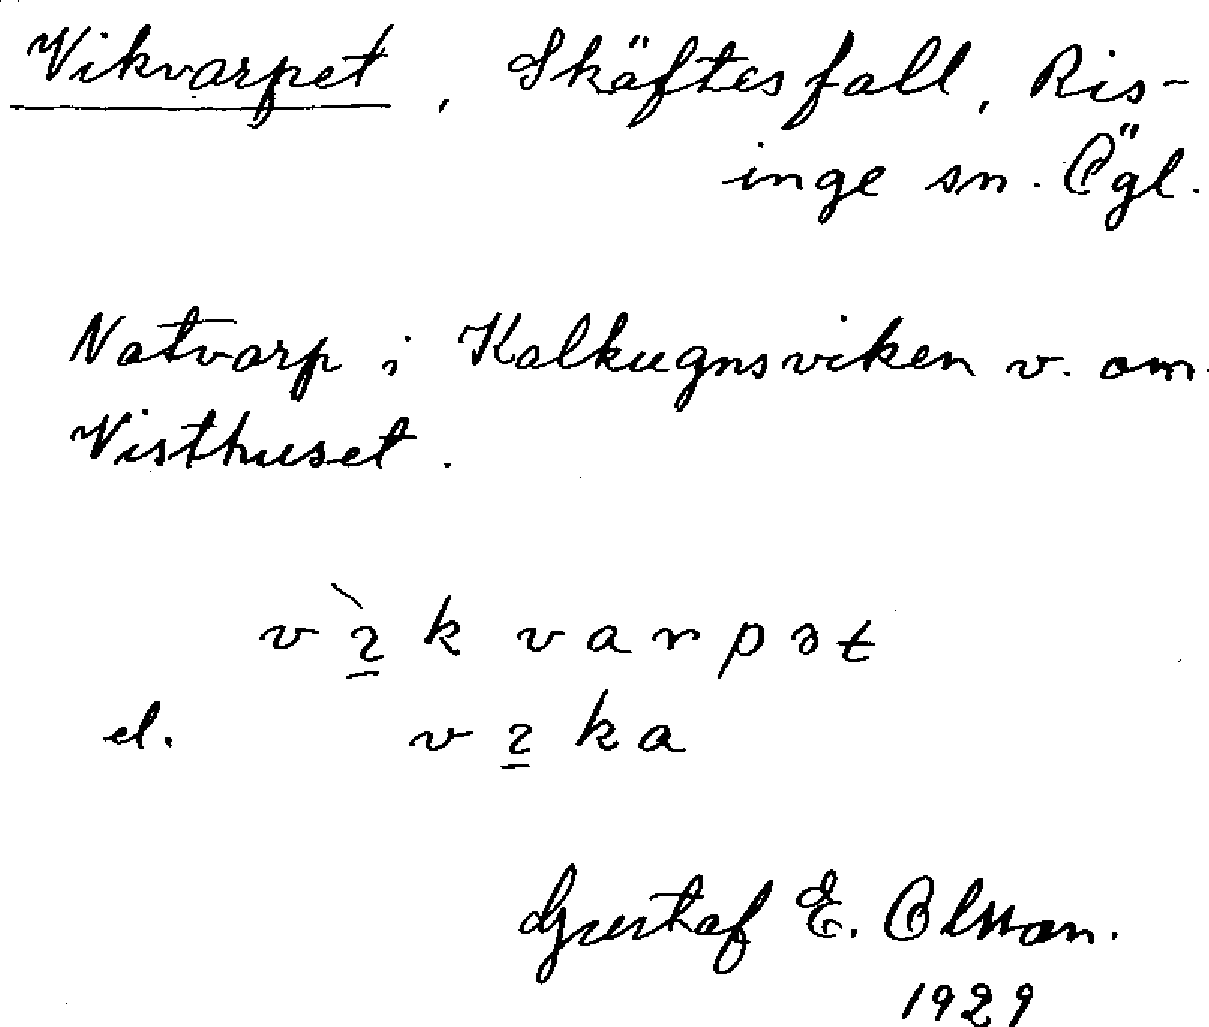 Vikvarpet, Skäftesfall, Ris-
inge sn. Ögl.
Notvarp i Kalkugnsviken v. om
Visthuset.
v ì̱ k v a r p ə t
el. v ɩ̱ k a
Gustaf E. Olsson.
1929